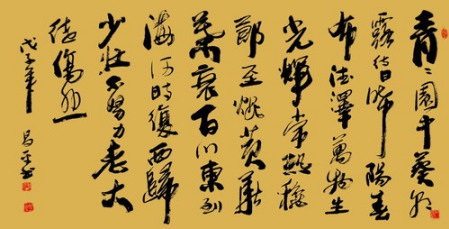 青〻園中葵朝
露待日晞陽春
布德澤萬物生
光輝常恐秋
節至焜黄華
葉衰百川東到
海何時復西歸
少壮不努力老大
徒傷悲
戊子年